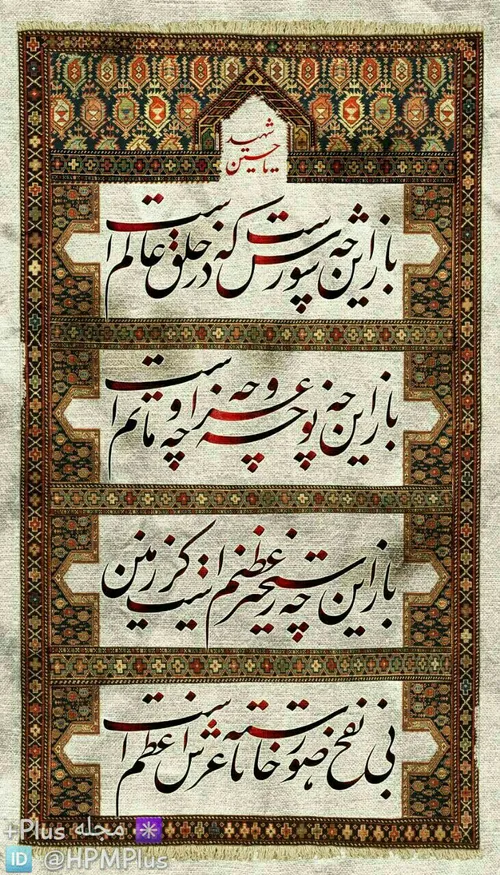 شهید
یا حسین
باز این چه شورش است که در خلق عالم است
باز این چه نوحه و چه عزا و چه ماتم است
باز این چه رستخیز عظیم است کز زمین
بی نفخ صور خاسته تا عرش اعظم است
مجله Plus+
ID @HPMPlus